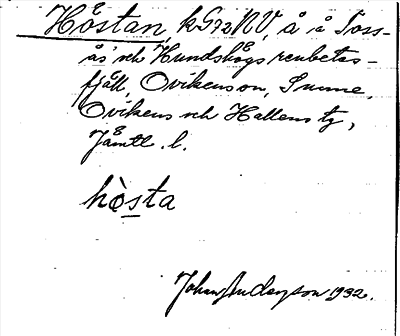 Håstan, kG72NV, å i Toss-
ås' och Hundshögs renbetes-
fjäll, Ovikens sn, Sunne,
Ovikens och Hallens tg,
Jämtl. l.
hòsta
Johan Anderson 1932.